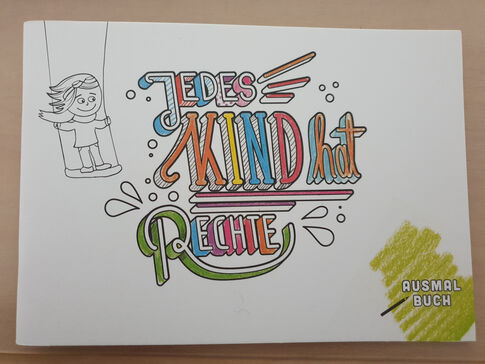 JEDES
KIND hat
RECHTE
AUSMAL
BUCH